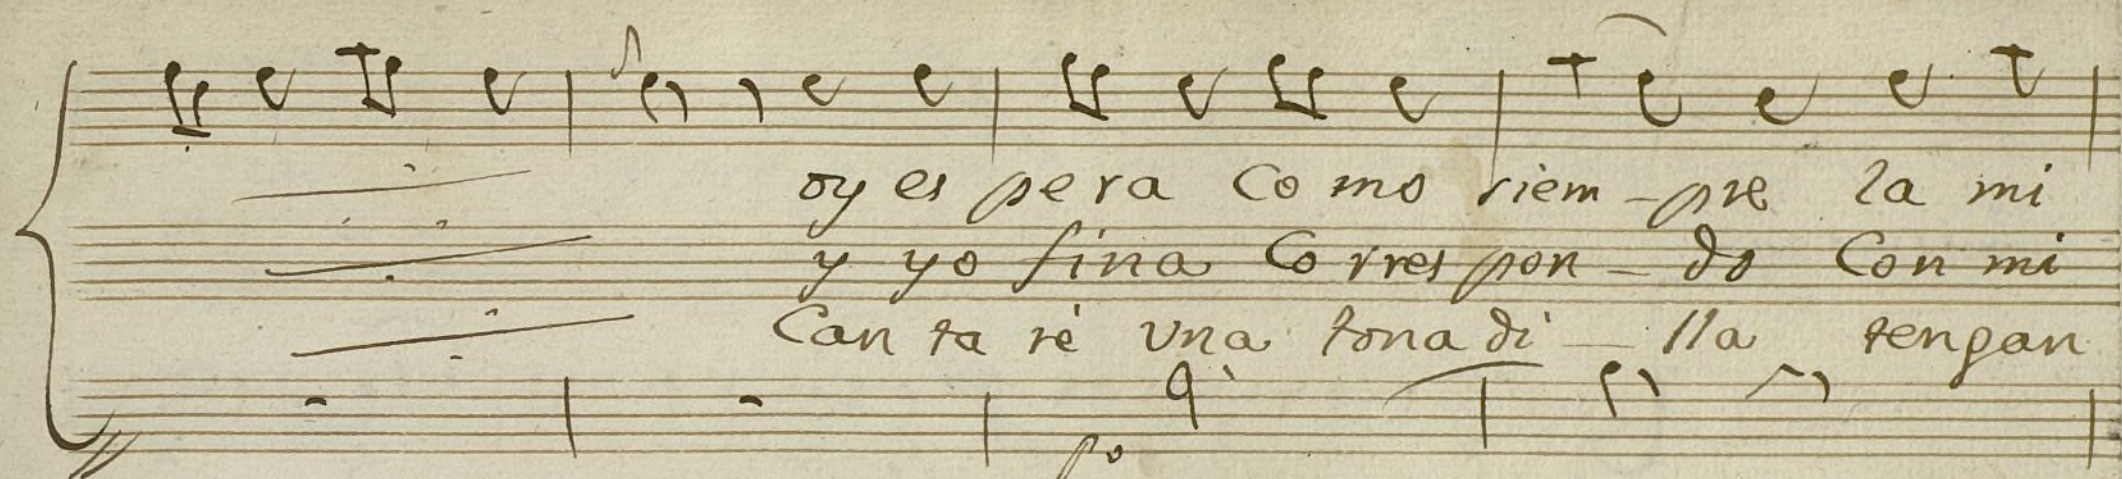 oy es pera Co mo siem - pre la mi
y yo fina Co rres pon - do Con mi
Can ta rè una tona di - lla tengan
po